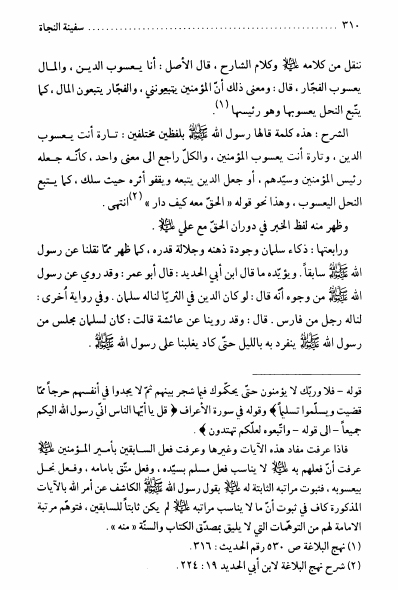 ٣١٠ ........................................ سفينة النجاة
ننقل من كلامه ﷺ وكلام الشارح ، قال الأصل : أنا يعسوب الدين ، والمال
يعسوب الفجّار ، قال : ومعنى ذلك أنّ المؤمنين يتبعونني ، والفجّار يتبعون المال ، كما
يتّبع النحل يعسوبها وهو رئيسها (١).
الشرح : هذه كلمة قالها رسول الله ﷺ بلفظين مختلفين : تارة أنت يعسوب
الدين ، وتارة أنت يعسوب المؤمنين ، والكلّ راجع الى معنى واحد ، كأنّه جعله
رئيس المؤمنين وسيّدهم ، أو جعل الدين يتبعه ويقفو أثره حيث سلك ، كما يتبع
النحل اليعسوب ، وهذا نحو قوله « الحقّ معه كيف دار » (٢) انتهى .
وظهر منه لفظ الخبر في دوران الحقّ مع علي ﷺ .
ورابعتها : ذكاء سلمان وجودة ذهنه وجلالة قدره ، كما ظهر ممّا نقلنا عن رسول
الله ﷺ سابقاً . ويؤيّده ما قال ابن أبي الحديد : قال أبو عمر : وقد روي عن رسول
الله ﷺ من وجوه أنّه قال : لو كان الدين في الثريّا لناله سلمان . وفي رواية اُخرى :
لناله رجل من فارس . قال : وقد روينا عن عائشة قالت : كان لسلمان مجلس من
رسول الله ﷺ ينفرد به بالليل حتّى كاد يغلبنا على رسول الله ﷺ .
قوله – فلا وربّك لا يؤمنون حتّى يحكّموك فيما شجر بينهم ثمّ لا يجدوا في أنفسهم حرجاً ممّا
قضيت ويسلّموا تسليماً ﴾ وقوله في سورة الأعراف ﴿ قل يا أيّها الناس انّي رسول الله اليكم
جميعاً – الى قوله – واتّبعوه لعلّكم تهتدون ﴾ .
فاذا عرفت مفاد هذه الآيات وغيرها وعرفت فعل السابقين بأمير المؤمنين ﷺ
عرفت أنّ فعلهم به ﷺ لا يناسب فعل مسلم بسيّده ، وفعل متّق بامامه ، وفعل نحل
بيعسوبه ، فثبوت مراتبه الثابتة له ﷺ بقول رسول الله ﷺ الكاشف عن أمر الله بالآيات
المذكورة كاف في ثبوت أنّ ما لا يناسب مراتبه ﷺ لم يكن ثابتاً للسابقين ، فتوهّم مرتبة
الامامة لهم من التوهّمات التي لا يليق بمصدّق الكتاب والسنّة « منه » .
(١) نهج البلاغة ص ٥٣٠ رقم الحديث : ٣١٦ .
(٢) شرح نهج البلاغة لابن أبي الحديد ١٩ : ٢٢٤ .